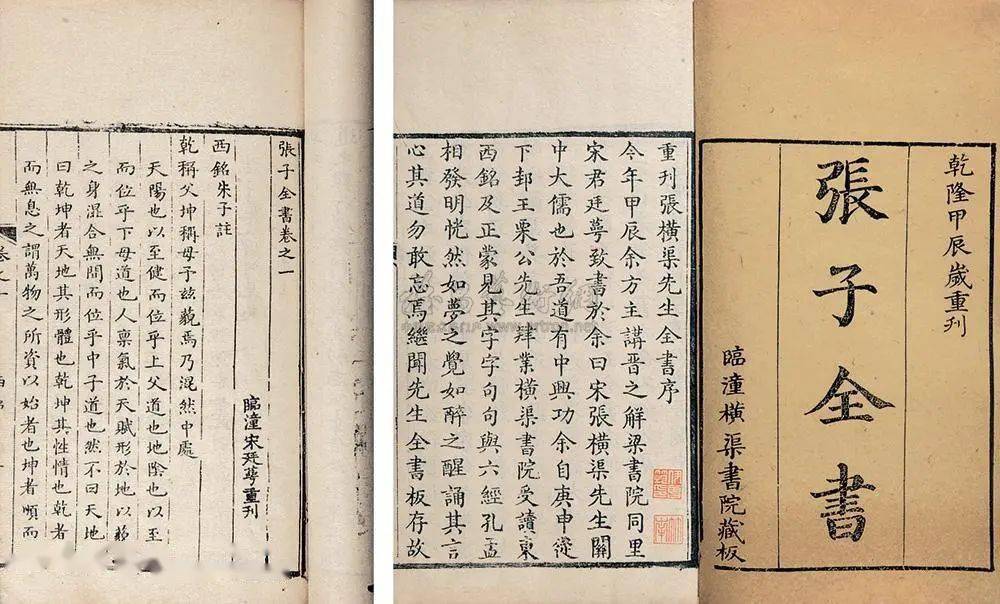 乾隆甲辰歲重刊
張子全書
臨潼橫渠書院藏板
重刊張橫渠先生全書序
今年甲辰余方主講晉之解梁書院同里
宋君廷萼致書於余曰宋張橫渠先生關
中大儒也於吾道有中興功余自庚申從
下邽王栗公先生肄業橫渠書院受讀東
西銘及正蒙見其字字句句與六經孔孟
相發明恍然如夢之覺如醉之醒誦其言
心其道勿敢忘焉繼聞先生全書板存故
張子全書卷之一
臨潼宋廷萼重刊
西銘朱子註
乾稱父坤稱母子玆藐焉乃混然中處
天陽也以至健而位乎上父道也地陰也以至
而位乎下母道也人禀氣於天賦形於地以藐
之身混合無間而位乎中子道也然不曰天地
曰乾坤者天地其形體也乾坤其性情也乾者
而無息之謂萬物之所資以始者也坤者順而
卷之一